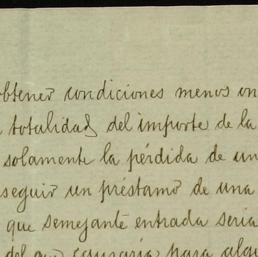 obtener condiciones menos on
totalidad del importe de la
solamente la pérdida de un
seguir un préstamo de una
que semejante entrada seria
del que causaría para algu